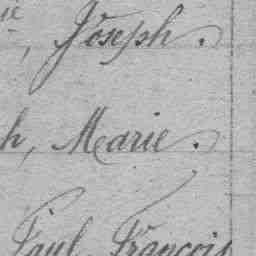 ie
, Joseph.
h, Marie.
Paul François